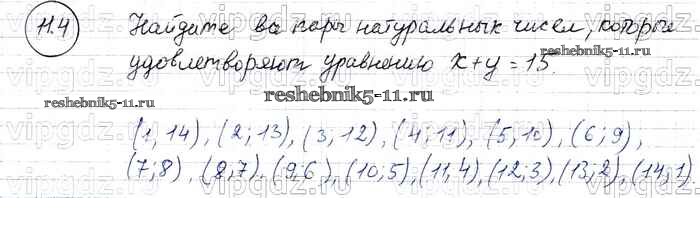 11.4 Найдите все пары натуральных чисел, которые
удовлетворяют уравнению x + y = 15.
reshebnik5-11.ru
reshebnik5-11.ru
reshebnik5-11.ru
(1, 14), (2; 13), (3, 12), (4; 11), (5, 10), (6; 9),
(7; 8), (8, 7), (9; 6), (10; 5), (11, 4), (12; 3), (13; 2), (14, 1).